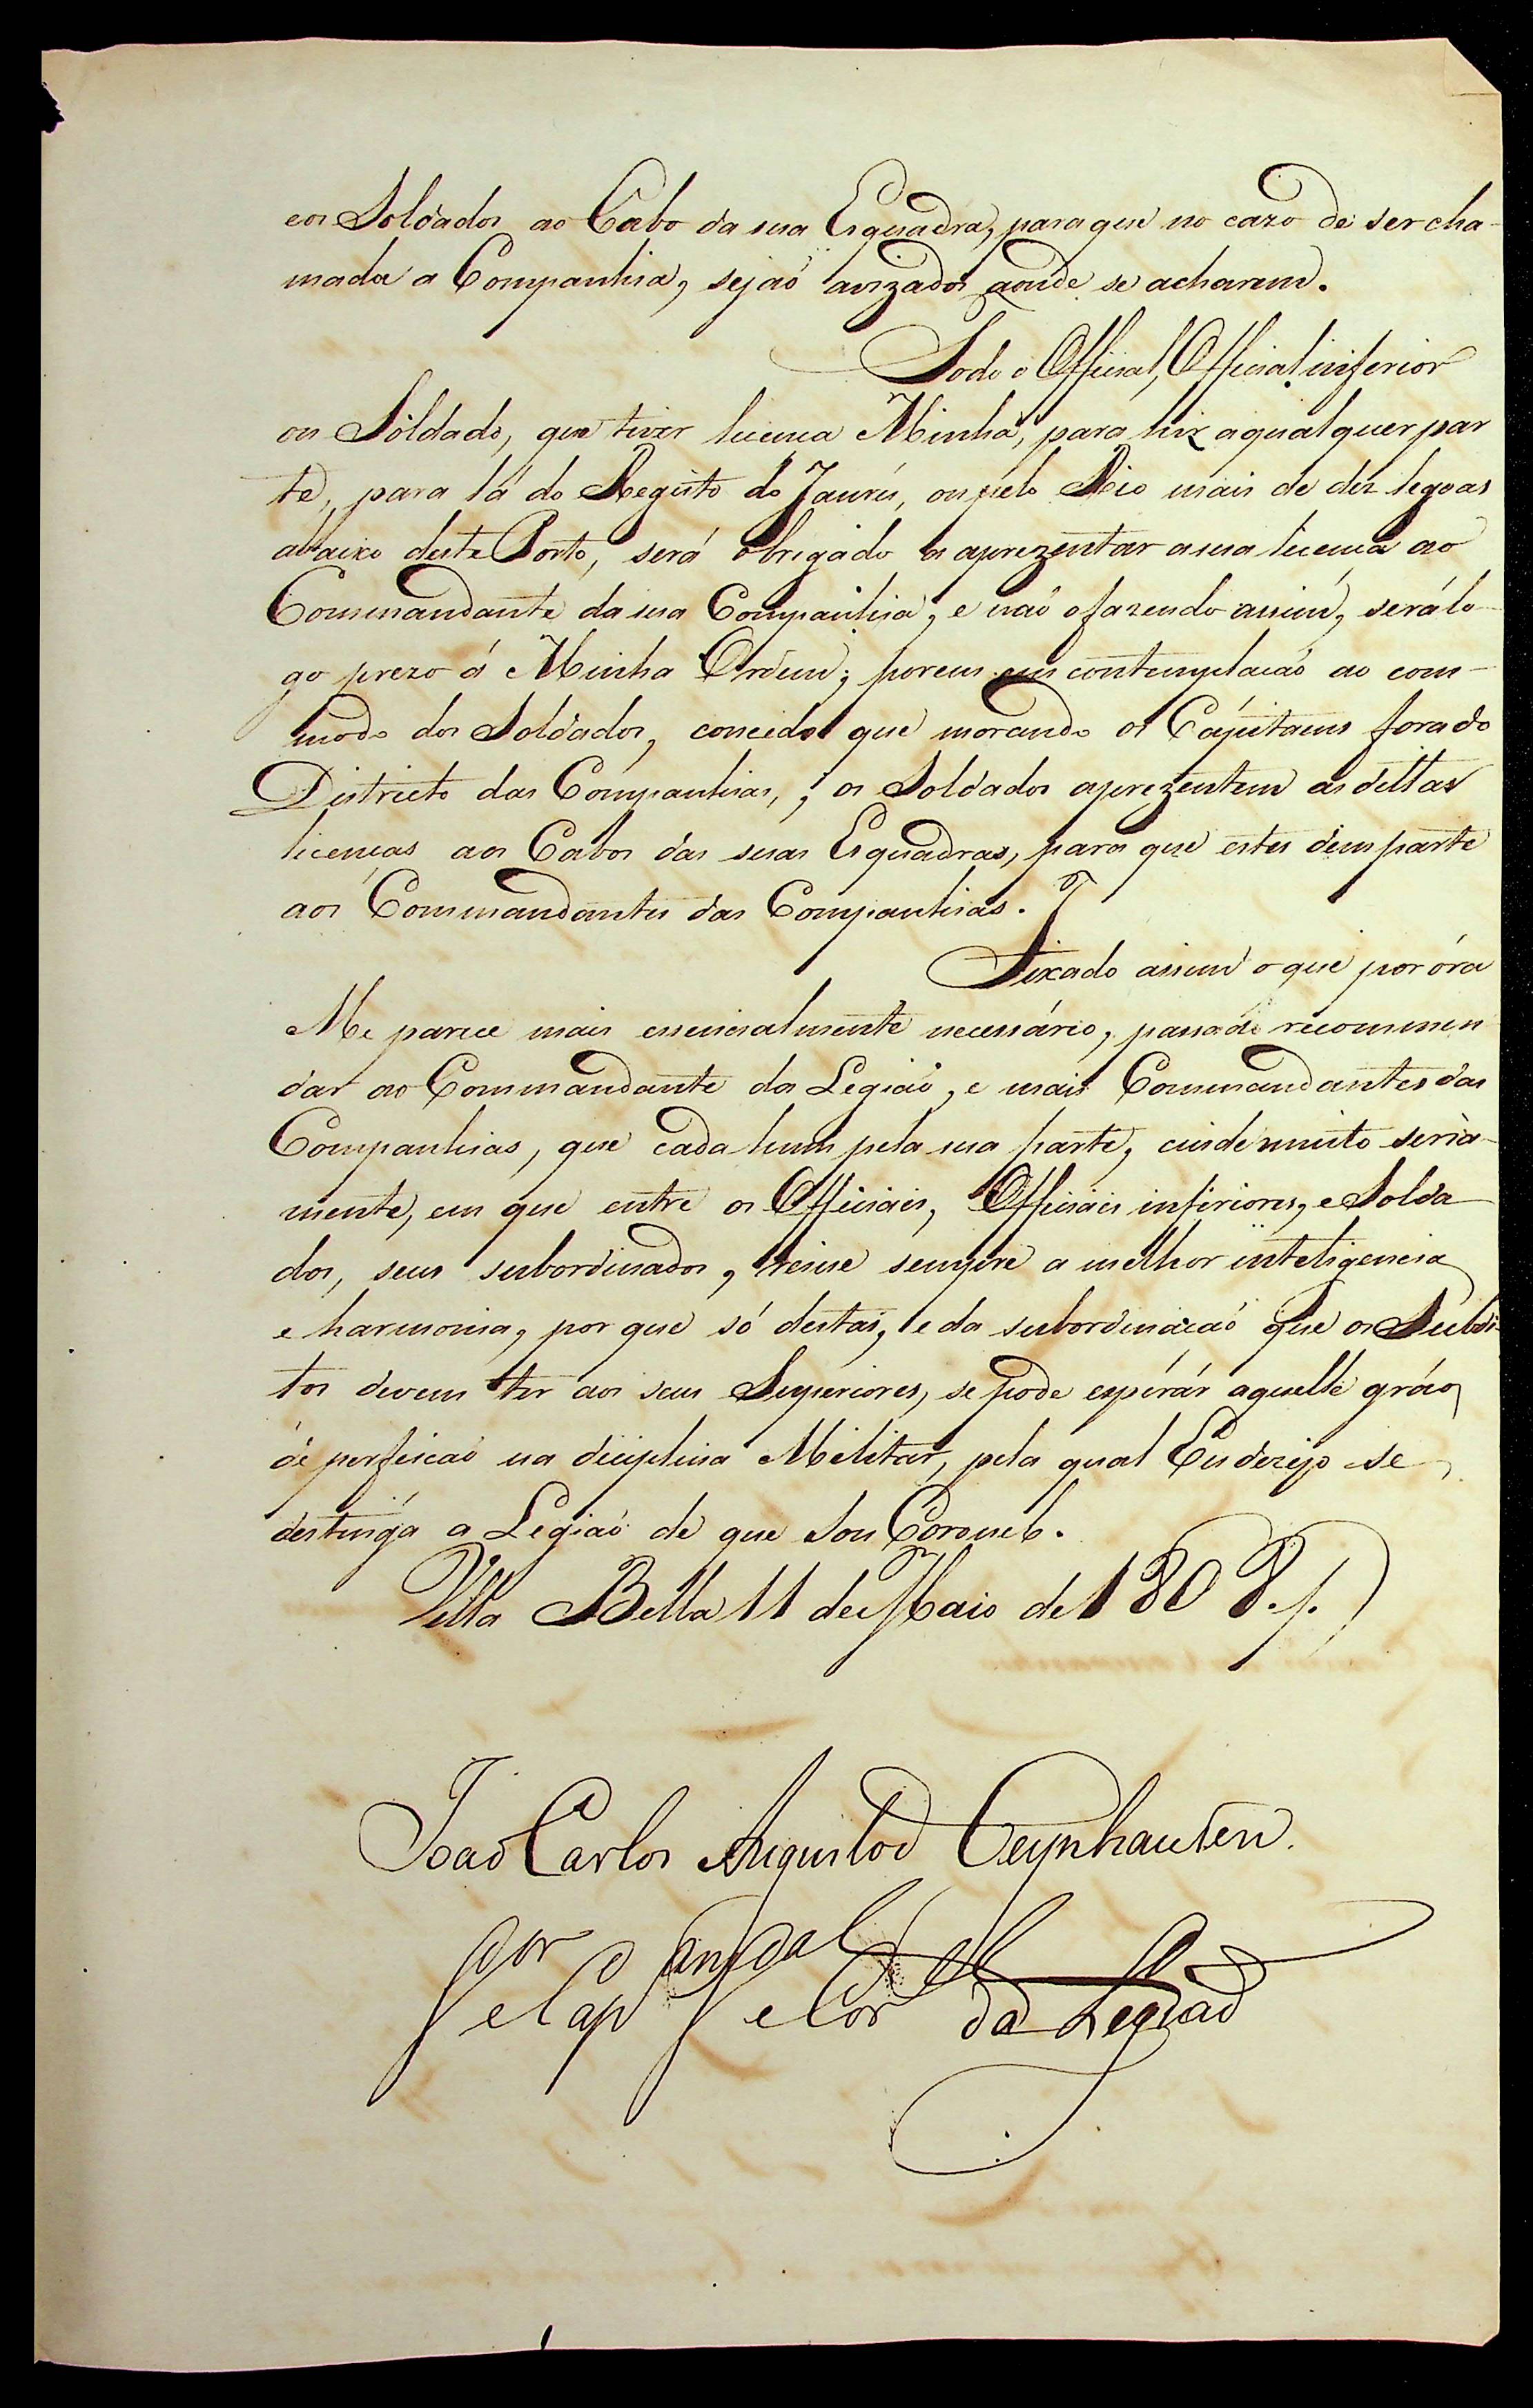 eos Soldados ao Cabo da sua Esquadra, paraque no cazo de ser cha-
mada a Companhia, sejaõ avizados aonde se acharem.
Todo o Official, Official inferior
ou Soldado, que tiver licença Minha, para hir aqualquer par
te, para lá do Registo do Jaurú, ou pelo Rio mais de dez legoas
abaixo deste Porto, será obrigado a aprezentar asua licença ao
Commandante da sua Companhia, e naõ ofazendo assim, será lo-
go prezo á Minha Ordem; porem em contemplaçaõ ao com-
modo dos Soldados, concedo que morando os Capitaens fora do
Districto das Companhias, os Soldados aprezentem as dittas
licenças aos Cabos das suas Esquadras, para que estes dem parte
aos Commandantes das Companhias.
Fixado assim oque por óra
Me parece mais essencialmente necessário, passo á recommen
dar ao Commandante da Legiaõ, e mais Commandantes das
Companhias, que cada hum pela sua parte, cuide muito séria-
mente, em que entre os Officiáes, Officiáes inferiores, e Solda-
dos, seus subordinados, reine sempre a melhor inteligencia
e harmonia, por que só destas, e da subordinaçaõ que os Subdi-
tos devem ter aos seus Superiores, se pode espérár aquelle gráo
de perfeicaõ na diciplina Militar, pela qual Eu dezejo se
destinga a Legiaõ de que sou Coronel.
Villa Bella 11 de Maio de 1808.
Joaõ Carlos Augusto d'Oeynhausen.
Gor e Cap Gal e Cor da Legiaõ